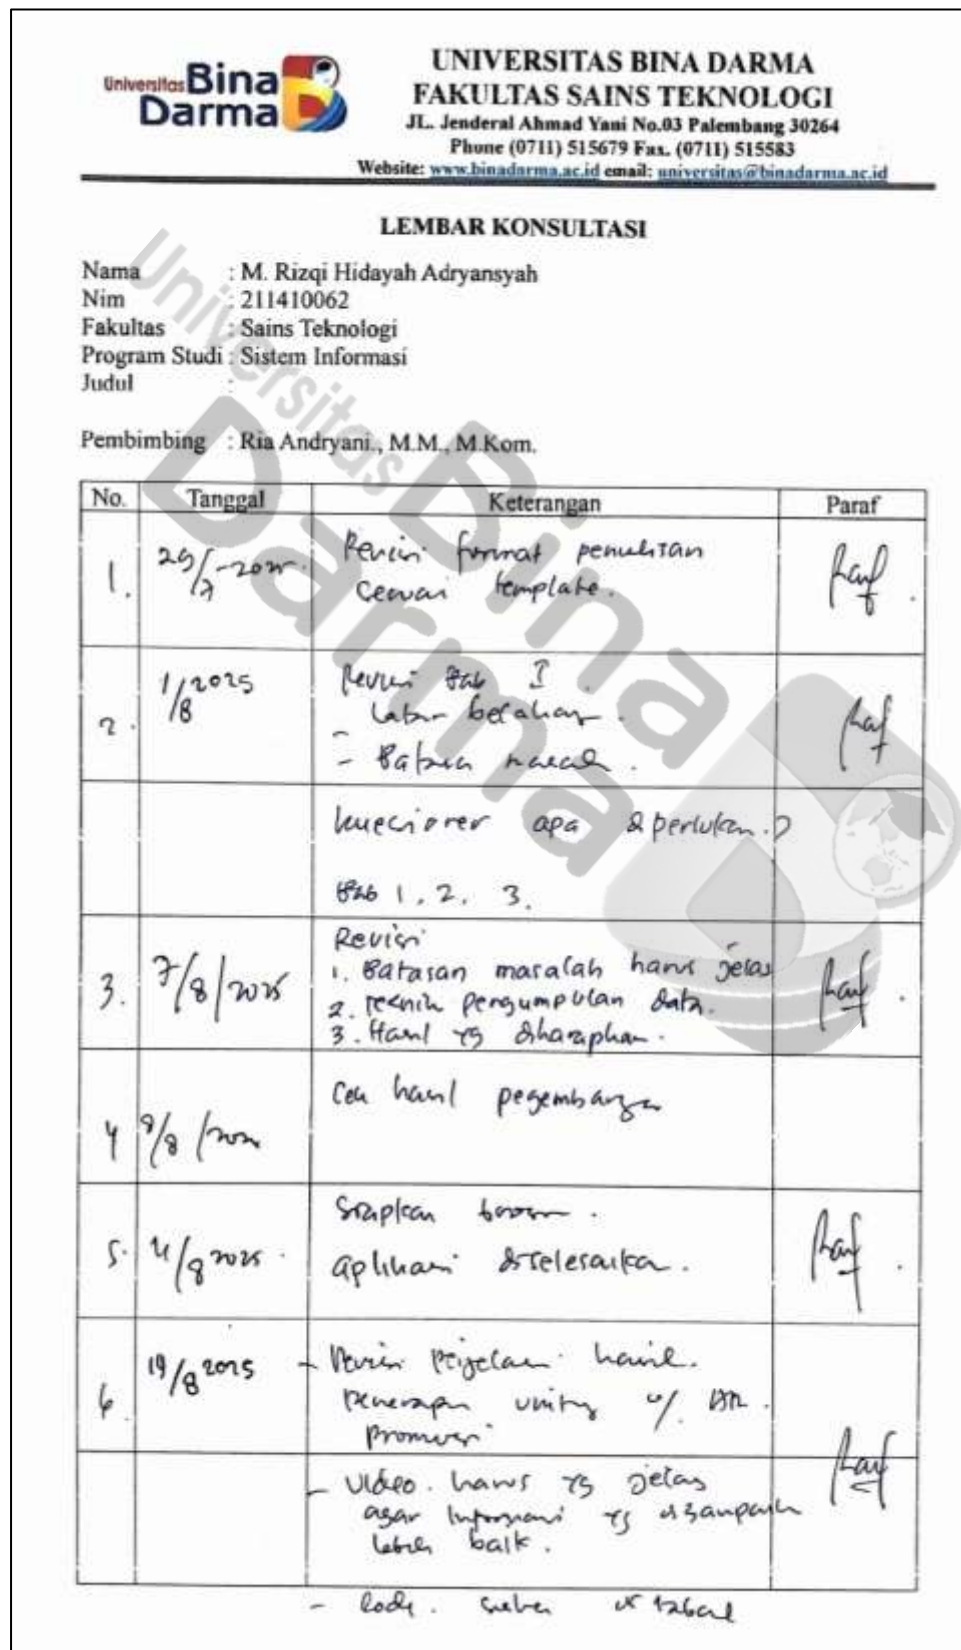 Universitas Bina
Darma
UNIVERSITAS BINA DARMA
FAKULTAS SAINS TEKNOLOGI
JL. Jenderal Ahmad Yani No.03 Palembang 30264
Phone (0711) 515679 Fax. (0711) 515583
Website: www.binadarma.ac.id email: universitas@binadarma.ac.id
LEMBAR KONSULTASI
Nama : M. Rizqi Hidayah Adryansyah
Nim : 211410062
Fakultas : Sains Teknologi
Program Studi : Sistem Informasi
Judul :
Pembimbing : Ria Andryani., M.M., M.Kom.
Universitas
Bina
Darma
No. Tanggal Keterangan Paraf
1. 29/7-2025. Revisi format penulisan
sesuai template.
2. 1/8 2025 Revisi Bab I.
- Latar belakang.
- Batasan masalah.
kuesioner apa diperlukan?
Bab 1. 2. 3.
Revisi
3. 7/8/2025 1. Batasan masalah harus jelas
2. Teknik pengumpulan data.
3. Hasil yg diharapkan.
4 8/8/2025 Cek hasil pegembangan
5. /8 2025. Siapkan
aplikasi diselesaikan.
6. 19/8 2025 - Revisi hasil.
penerapan unity u/ AR.
promosi
- Video. harus yg jelas
agar informasi yg disampaikan
lebih baik.
- Code.